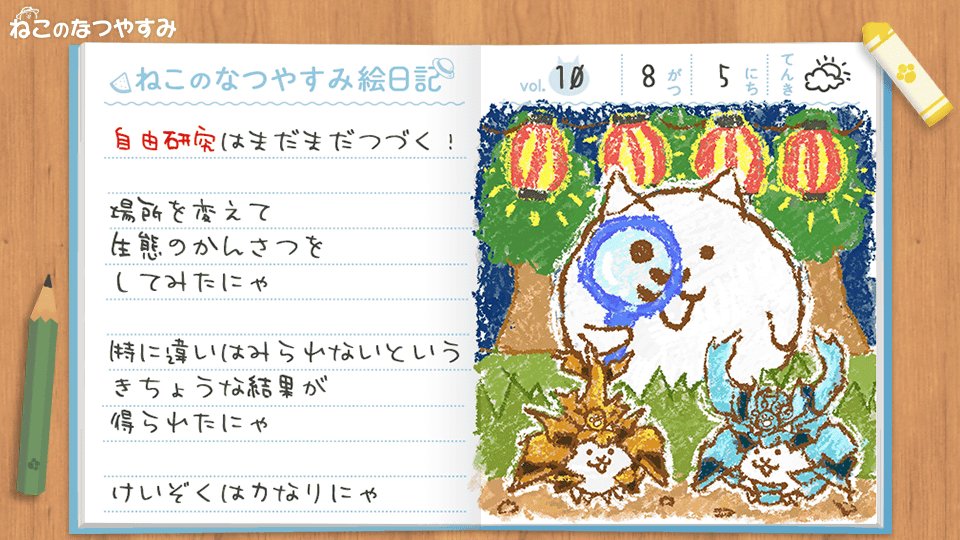 ねこのなつやすみ
ねこのなつやすみ絵日記
vol. 10 8 がつ 5 にち てんき
自由研究はまだまだつづく!
場所を変えて
生態のかんさつを
してみたにゃ
特に違いはみられないという
きちょうな結果が
得られたにゃ
けいぞくは力なりにゃ